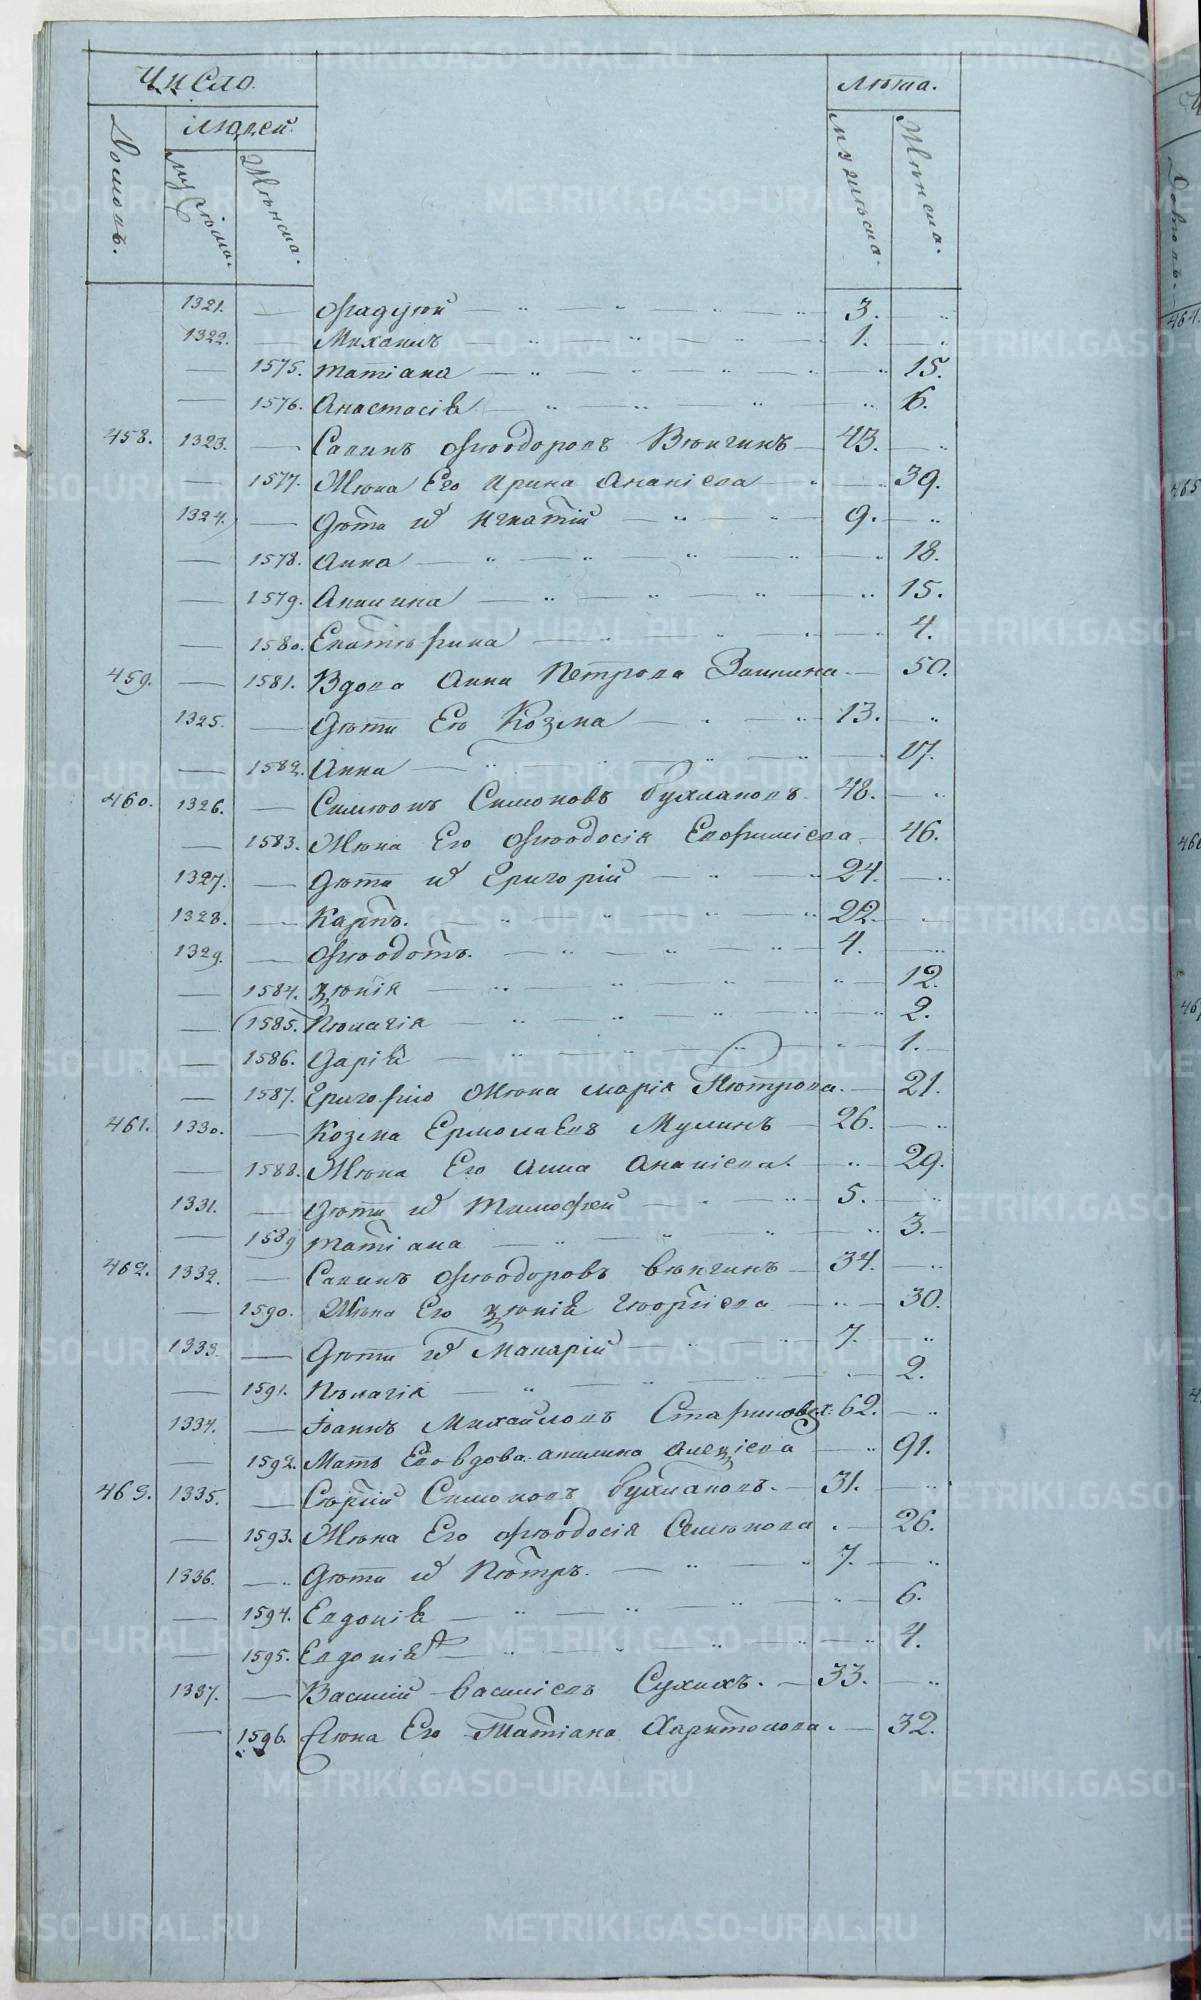 Число.
Лѣта.
Людей.
Домовъ.
Мужеска.
Женска.
Мужеска.
Женска.
1321. — — 3.
1322. — Михаилъ — 1.
— 1575. Татіана — 15.
— 1576. Анастасія — 6.
458. 1323. — Савинъ Феодоровъ — 43.
— 1577. Жена Его Ирина Ананіева — 39.
1324. — Дѣти и Игнатій — 9.
— 1578. Анна — 18.
— 1579. Акилина — 15.
— 1580. Екатерина — 4.
459. — 1581. Вдова Анна Петрова — 50.
1325. — Дѣти Ею Козма — 13.
— 1582. Анна — 17.
460. 1326. — Симеонъ Симоновъ — 48.
— 1583. Жена Его Феодосія Евфиміева — 46.
1327. — Дѣти и Григорій — 24.
1328. — Карпъ. — 22.
1329. — Феодотъ. — 4.
— 1584. Ксенія — 12.
— 1585. Пелагія — 2.
— 1586. Дарія — 1.
— 1587. Григорію Жена Марія Петрова. — 21.
461. 1330. — Козма Ермолаевъ Мулинъ — 26.
— 1588. Жена Его Анна Ананіева. — 29.
1331. — Дѣти и Тимофей — 5.
— 1589 Татіана — 3.
462. 1332. — Савинъ Феодоровъ — 34.
— 1590. Жена Его Ксенія Георгіева — 30.
1333. — Дѣти и Макарій — 7.
— 1591. Пелагія — 2.
1334. — Іоаннъ Михайловъ — 62.
— 1592. Мать Его вдова Акилина Алексіева — 91.
463. 1335. — Сергій Симоновъ — 31.
— 1593. Жена Его Феодосія Семенова — 26.
1336. — Дѣти и Петръ. — 7.
— 1594. Евдокія — 6.
— 1595. Евдокія — 4.
1337. — Василій Василіевъ Сухихъ. — 33.
— 1596. Жена Его Татіана Харитонова. — 32.
METRIKI.GASO-URAL.RU